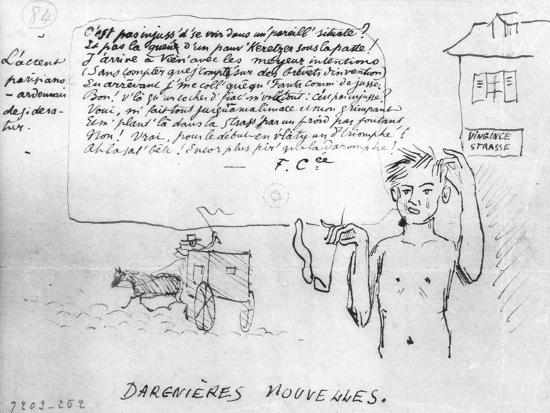 84
L'accent
parisiano
- ardennais
desidera-
tur.
C'est pas injuss' d'se voir dans un' pareill' situate?
Et pas la queue d'un pauv' Keretzer sous la patte!
J'arrive à Vien' avec les meyeur' intentions
(Sans compter quej' compt' sur des brévets d'invention)
En arrêvant j' me coll' quéqu' Fanta comm' de juss'.
Bon! v'là qu'un cocher d'fiac' m'vol' tout! C'est pas injusse?
Voui, on fait tout jusqu'à ma limace et mon grimpant
Sem' plant' là dans la Strass' par un froid pas foutant
Non! Vrai, pour le début en v'là ty un d'triomphe!
Ah la sal' bête! Encor plus pir' qu'la daromphe!
F. Cée
VINGINCE
STRASSE
DARGNIÈRES NOUVELLES.
7203-262